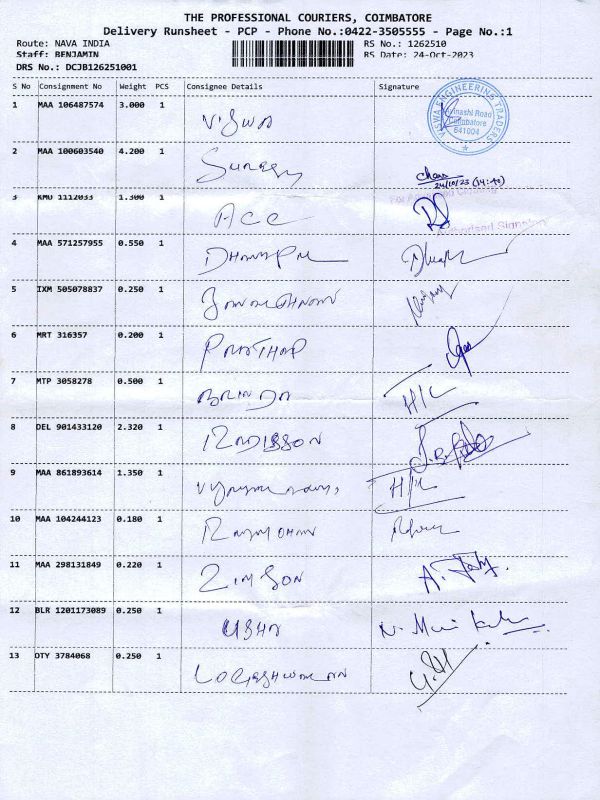 THE PROFESSIONAL COURIERS, COIMBATORE
Delivery Runsheet - PCP - Phone No.:0422-3505555 - Page No.:1
Route: NAVA INDIA RS No.: 1262510
Staff: BENJAMIN RS Date: 24-Oct-2023
DRS No.: DCJB126251001
S No Consignment No Weight PCS Consignee Details Signature
1 MAA 106487574 3.000 1 VISWA
VISWA ENGINEERING TRADERS
Avinashi Road
Coimbatore
641004
2 MAA 100603540 4.200 1 Suresh
24/10/23 (14:40)
3 KMU 1112033 1.300 1 ACE
Authorised Signatory
4 MAA 571257955 0.550 1 DHANAPAL
5 IXM 505078837 0.250 1
6 MRT 316357 0.200 1 PRATHAP
7 MTP 3058278 0.500 1 BRINDA H/C
8 DEL 901433120 2.320 1 RADISSON
9 MAA 861893614 1.350 1
10 MAA 104244123 0.180 1 RAJMOHAN
11 MAA 298131849 0.220 1 ZIMSON
12 BLR 1201173089 0.250 1 USHA N. Mani
13 OTY 3784068 0.250 1 LOGESHWARAN